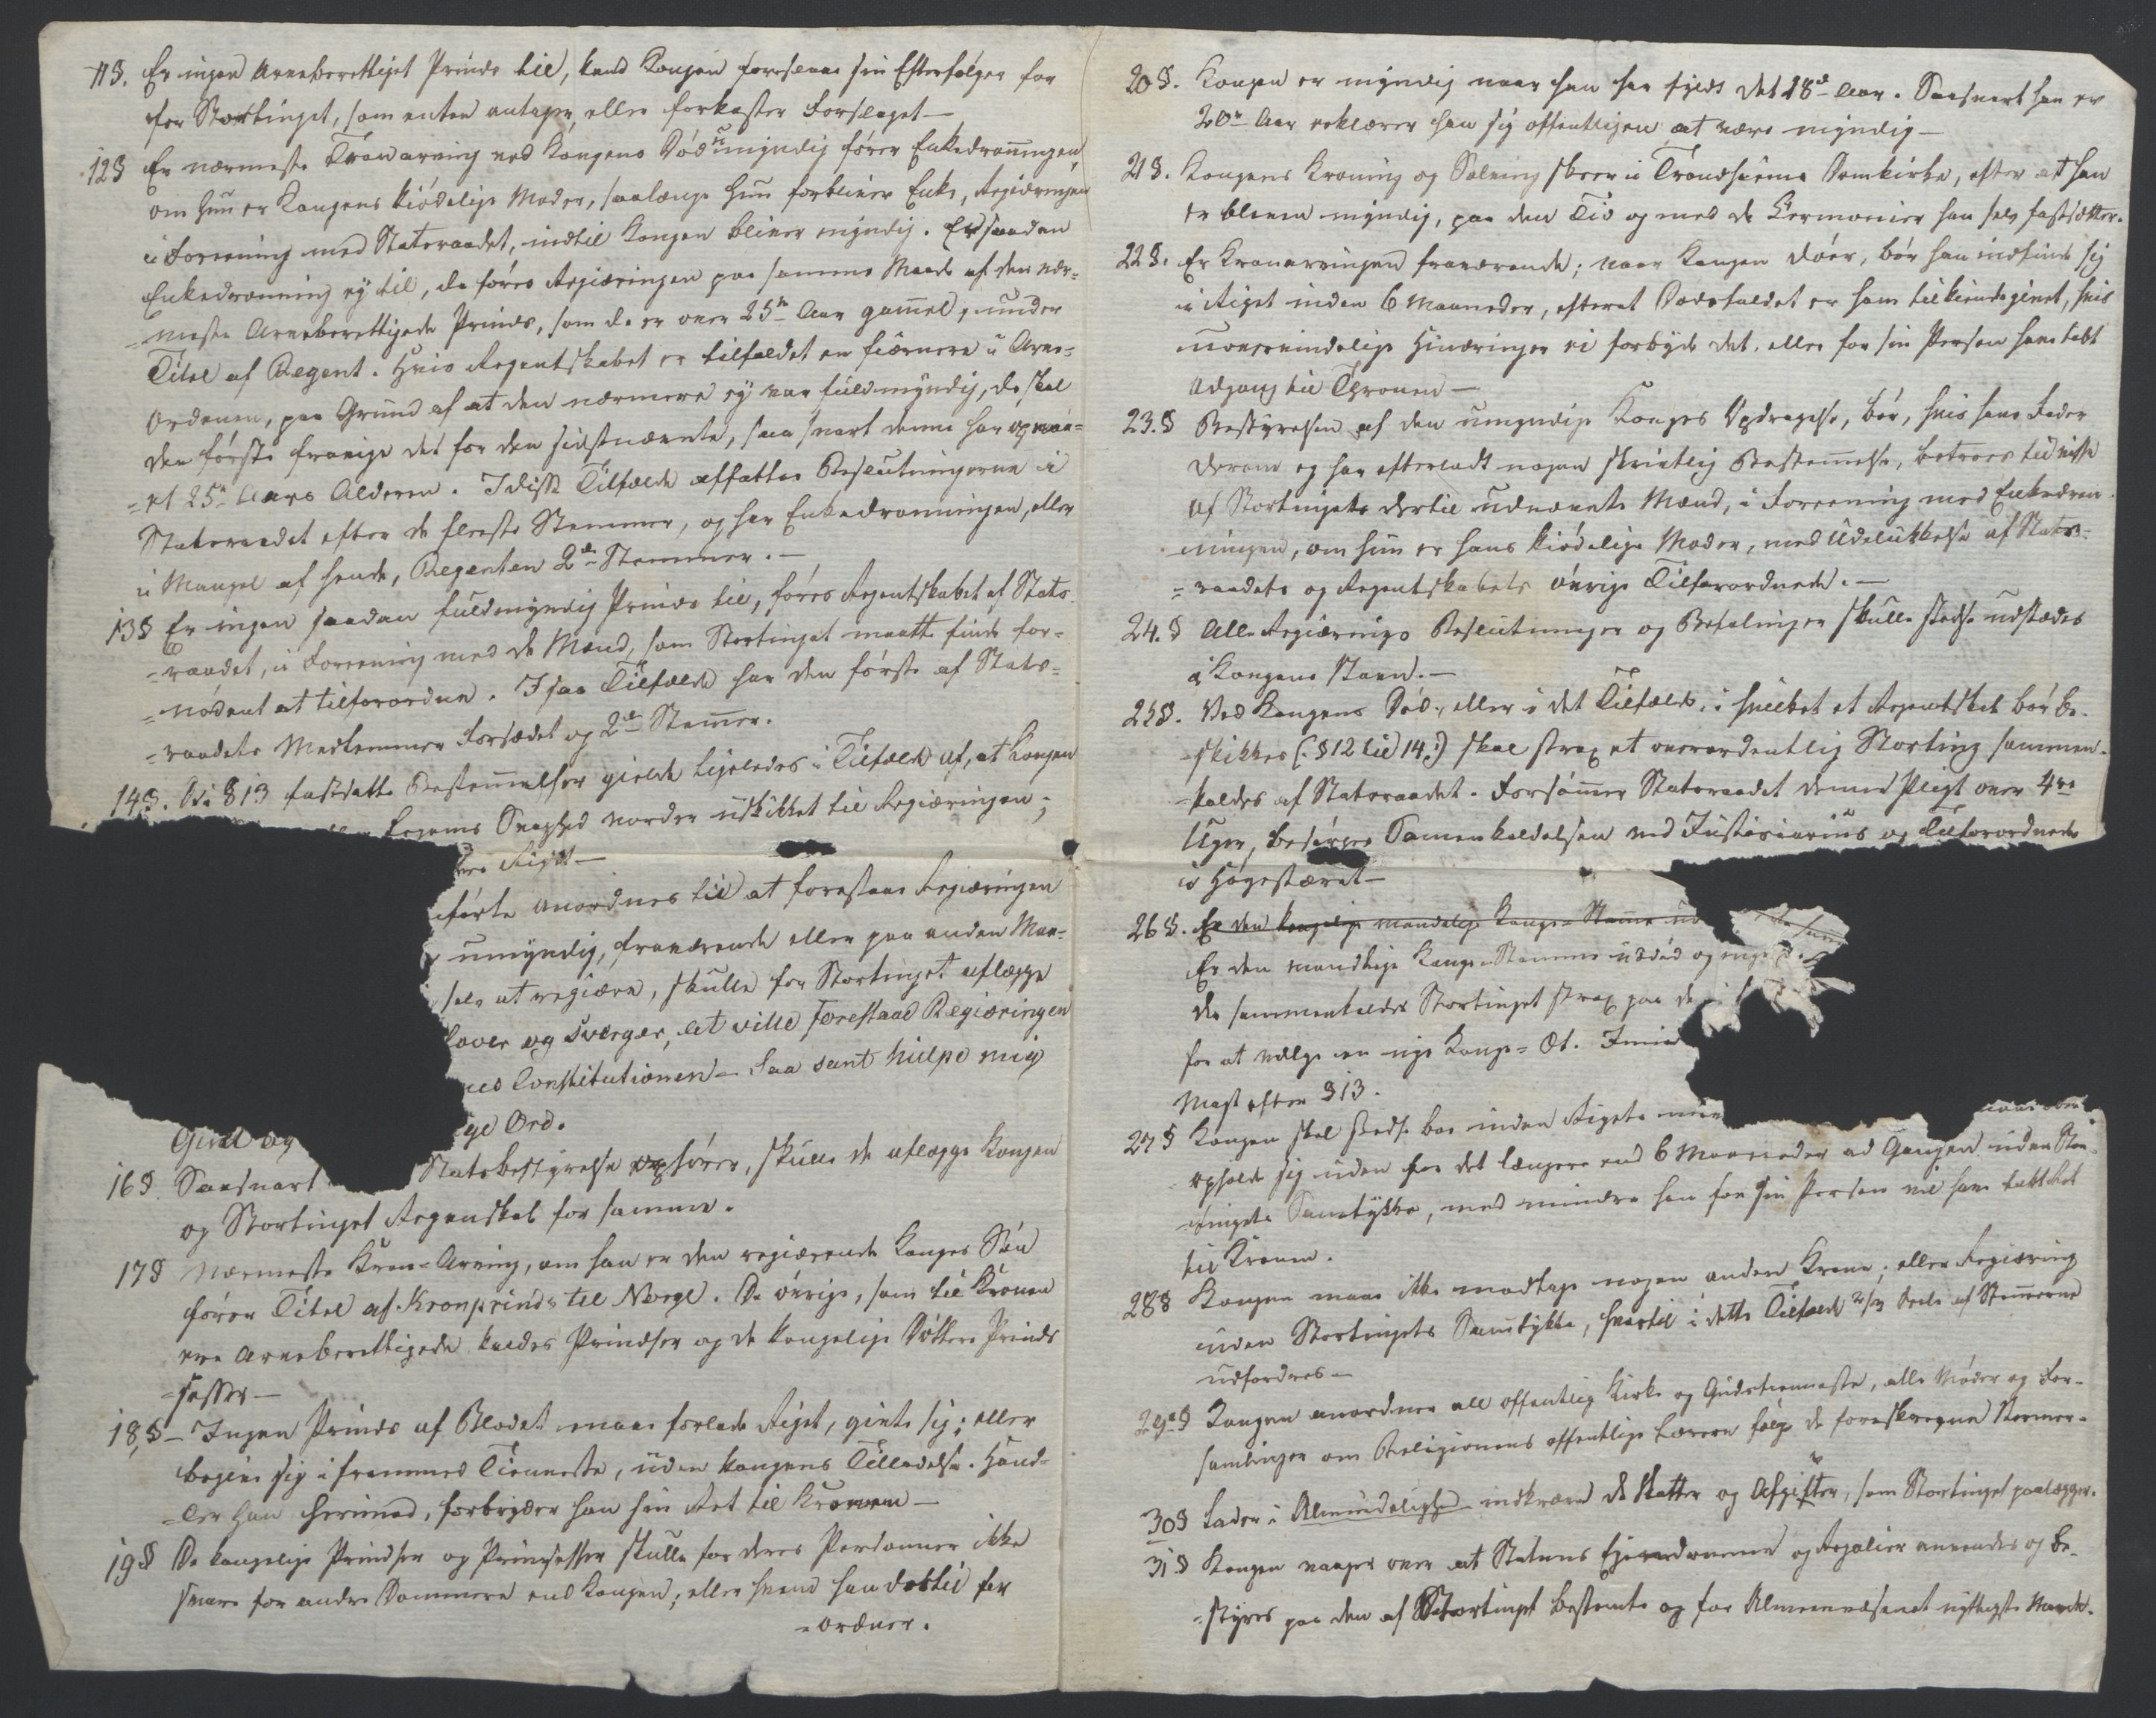 11§. Er ingen Arveberettiget Prinds til, kand Kongen foreslaae sin Efterfølger for
for Stortinget, som enten antager eller forkaster Forslaget —
12§ Er nærmeste Tronarving ved Kongens Død umyndig fører Enkedronningen,
om hun er Kongens kiødelige Moder, saalænge hun forbliver Enke, Regieringen
i Foreening med Statsraadet, indtil Kongen bliver myndig. Er saadan
Enkedronning ej til, da føres Regieringen paa samme Maade af den nær-
=meste Arveberettigede Prinds, som da er over 25de Aar gammel, under
Titel af Regent. Hvis Regentskabet er tilfaldet en fiærnere i Arve-
Ordenen, paa Grund af at den nærmere ej var fuldmyndig, da skal
den første fravige det for den sidstnævnte, saa snart denne har opnaa-
=et 25de Aars Alderen. I disse Tilfælde affattes Beslutningerne i
Statsraadet efter de fleeste Stemmer, og har Enkedronningen, eller
i Mangel af hende, Regenten 2de Stemmer. —
13§ Er ingen saadan fuldmyndig Prinds til, føres Regentskabet af Stats-
=raadet, i Foreening med de Mænd, som Stortinget maatte finde for-
=nødent at tilforordne. I saa Tilfælde har den første af Stats-
=raadets Medlemmer Forsædet og 2de Stemmer.
14§. De i § 13 fastsatte Bestemmelser gielde ligeledes i Tilfælde af, at Kongen
Legems Svaghed vorder uskikket til Regieringen;
anordnes til at forestaae Regieringen
umyndig, fraværende eller paa anden Maa-
selv at regiære, skulle for Stortinget aflægge
lover og sværger, at ville forestaae Regieringen
Constitutionen — Saa sant hielpe mig
Gud og ge Ord.
16§ Saasnart Statsbestyrelse ophører, skulle de aflægge Kongen
og Stortinget Regenskab for samme.
17§ Nærmeste Kron=Arving, om han er den regiærende Konges Søn
fører Titel af Kronprinds til Norge. De øvrige, som til Kronen
ere Arveberettigede kaldes Prindser og de kongelige Døttre Prinds
=sesser —
18§ — Ingen Prinds af Blodet maae forlade Riget, givte sig; eller
begive sig i fremmed Tienneste, uden Kongens Tilladelse. Hand-
=ler han herimod, forbryder han sin Ret til Kronen —
19§ De kongelige Prindser og Prinsesser skulle for deres Personner ikke
svare for andre Dommere end Kongen; eller hvem han dertil for
=ordner.
20§. Kongen er myndig naar han har fyldt det 18de Aar. Saasnart han er
20de Aar erklærer han sig offentligen at være myndig —
21§. Kongens Kroning og Salving skeer i Trondhiems Domkirke, efter at han
er bleven myndig, paa den Tid og med de Cermonier han selv fastsætter.
22§. Er Kronarvingen fraværende; naar Kongen døer, bør han indfinde sig
i Riget inden 6 Maaneder, efterat Dødsfaldet er ham tilkiendegivet, hvis
uovervindelige Hindringer ei forbyde det, eller for sin Person have tabt
Adgang til Thronen —
23.§ Bestyrelsen af den umyndige Konges Opdragelse, bør, hvis hans Fader
derom ej har efterladt nogen skrivtlig Bestemmelse, betroes til visse
af Stortinget dertil udnævnte Mænd, i Foreening med Enkedron
ningen, om hun er hans kiødelige Moder, med Udelukkelse af Stats-
=raadets og Regentskabets øvrige Tilforordnede. —
24.§ Alle Regierings Beslutninger og Befalinger skulle stedse udstædes
i Kongens Navn. —
25§. Ved Kongens Død, eller i det Tilfælde, i hvilket et Regentskab bør be-
=skikkes (: § 12 til 14 :) skal strax et overordentlig Storting sammen-
=kaldes af Statsraadet. Forsømmer Statsraadet denne Pligt over 4re
Uger, besørges Samenkaldelsen ved Justiciarius og Tilforordnede
i Høyesteret —
26§. Er den kongelige mandelige Konge=Stamme ud
Er den mandlige Konge=Stamme uddød og ingen
da sammenkaldes Stortinget strax paa de
for at vælge en nye Konge=Æt. Imid
Magt efter § 13.
27§ Kongen skal stedse boe inden Rigets
opholde sig uden for det længere end 6 Maaneder ad Gangen uden Stor-
tingets Samtykke, med mindre han for sin Person vil have tabt Ret
til Kronen.
28§ Kongen maae ikke modtage nogen anden Krone; eller Regiering
uden Stortingets Samtykke, hvortil i dette Tilfælde 2/3 Deele af Stemmerne
udfordres —
29de§ Kongen anordner all offentlig Kirke og Gudstienneste, alle Møder og For-
samlinger om Religionens offentlige Lærere følge de foreskrevne Normer.
30§ Lader i Almindelighed indkræve de Skatter og Afgifter, som Stortinget paalægger.
31§ Kongen vaager over at Statens Eiendomme og Regalier anvendes og be-
=styres paa den af Stortinget bestemte og for Almeenvæsenet nyttigste Maade.